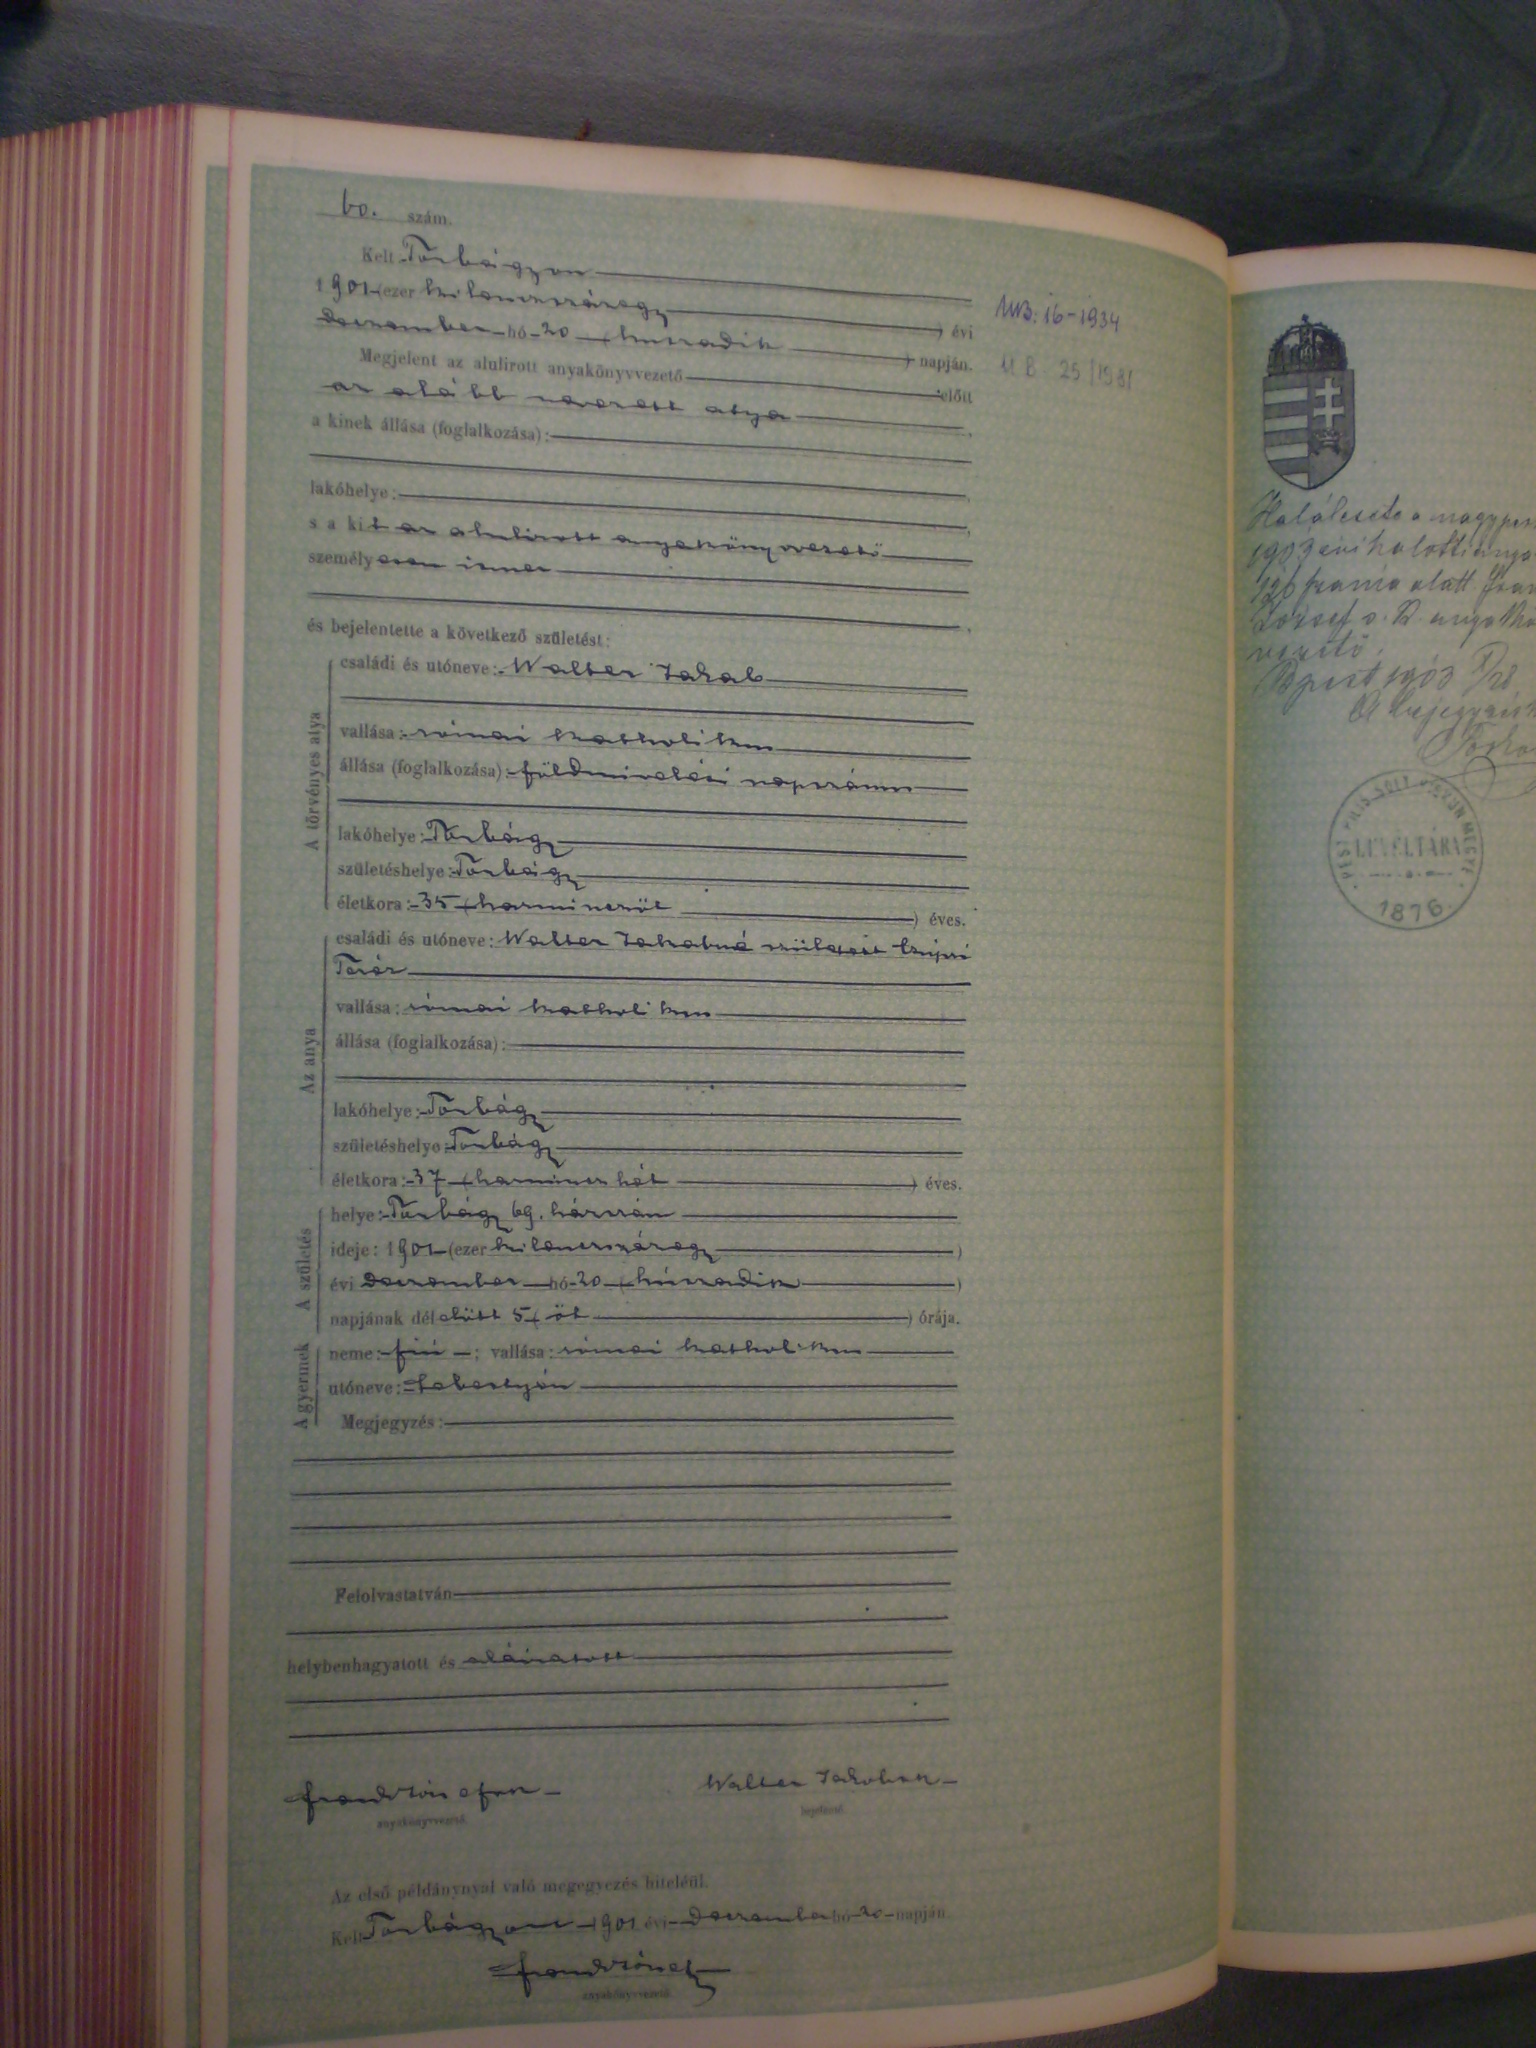 60. szám.
Kelt Torbágyon
1901 (ezer kilenczszázegy) évi
deczember hó 20 (huszadik) napján.
Megjelent az alulirott anyakönyvvezető előtt
az alább nevezett atya,
a kinek állása (foglalkozása):
lakóhelye:
s a kit az alulirott anyakönyvvezető
személyesen ismer
és bejelentette a következő születést:
A törvényes atya
családi és utóneve: Walter Jakab
vallása: római katholikus
állása (foglalkozása): földmivelési napszámos
lakóhelye: Torbágy
születéshelye: Torbágy
életkora: 35 (harminczöt) éves.
Az anya
családi és utóneve: Walter Jakabné született
Teréz
vallása: római katholikus
állása (foglalkozása):
lakóhelye: Torbágy
születéshelye: Torbágy
életkora: 37 (harminczhét) éves.
A születés
helye: Torbágy 69. házszám
ideje: 1901 (ezer kilenczszázegy)
évi deczember hó 20 (húszadik)
napjának délelőtt 5 (öt) órája.
A gyermek
neme: fiú; vallása: római katholikus
utóneve: Sebestyén
Megjegyzés:
Felolvastatván
helybenhagyatott és aláiratott
anyakönyvvezető
Walter
bejelentő
Az első példánynyal való megegyezés hiteléül.
Kelt Torbágyon 1901 évi deczember hó 20 napján.
anyakönyvvezető
16-1934
25/1981
Halálesete a
1903 évi halotti
szama alatt
József
vezető.
Bpest 1903
A
LEVÉLTÁRA
1876